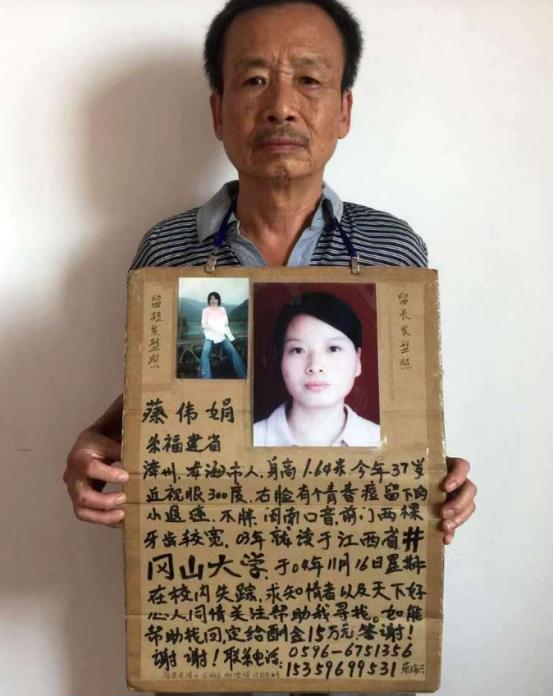 留短发型照
留长发型照
蔡伟娟
福建省
漳州，龙海市人，身高1.64米今年37岁
近视眼300度，右脸有个青春痘留下的
小退迹，不胖，闽南口音，前门两棵
牙齿较宽，03年就读于江西省井
冈山大学于04年11月16日星期
在校内失踪，求知情者以及天下好
心人同情关注帮助我寻找。如能
帮助找回，定给酬金15万元，答谢！
谢谢！联系电话：0596-6751356
15359699531